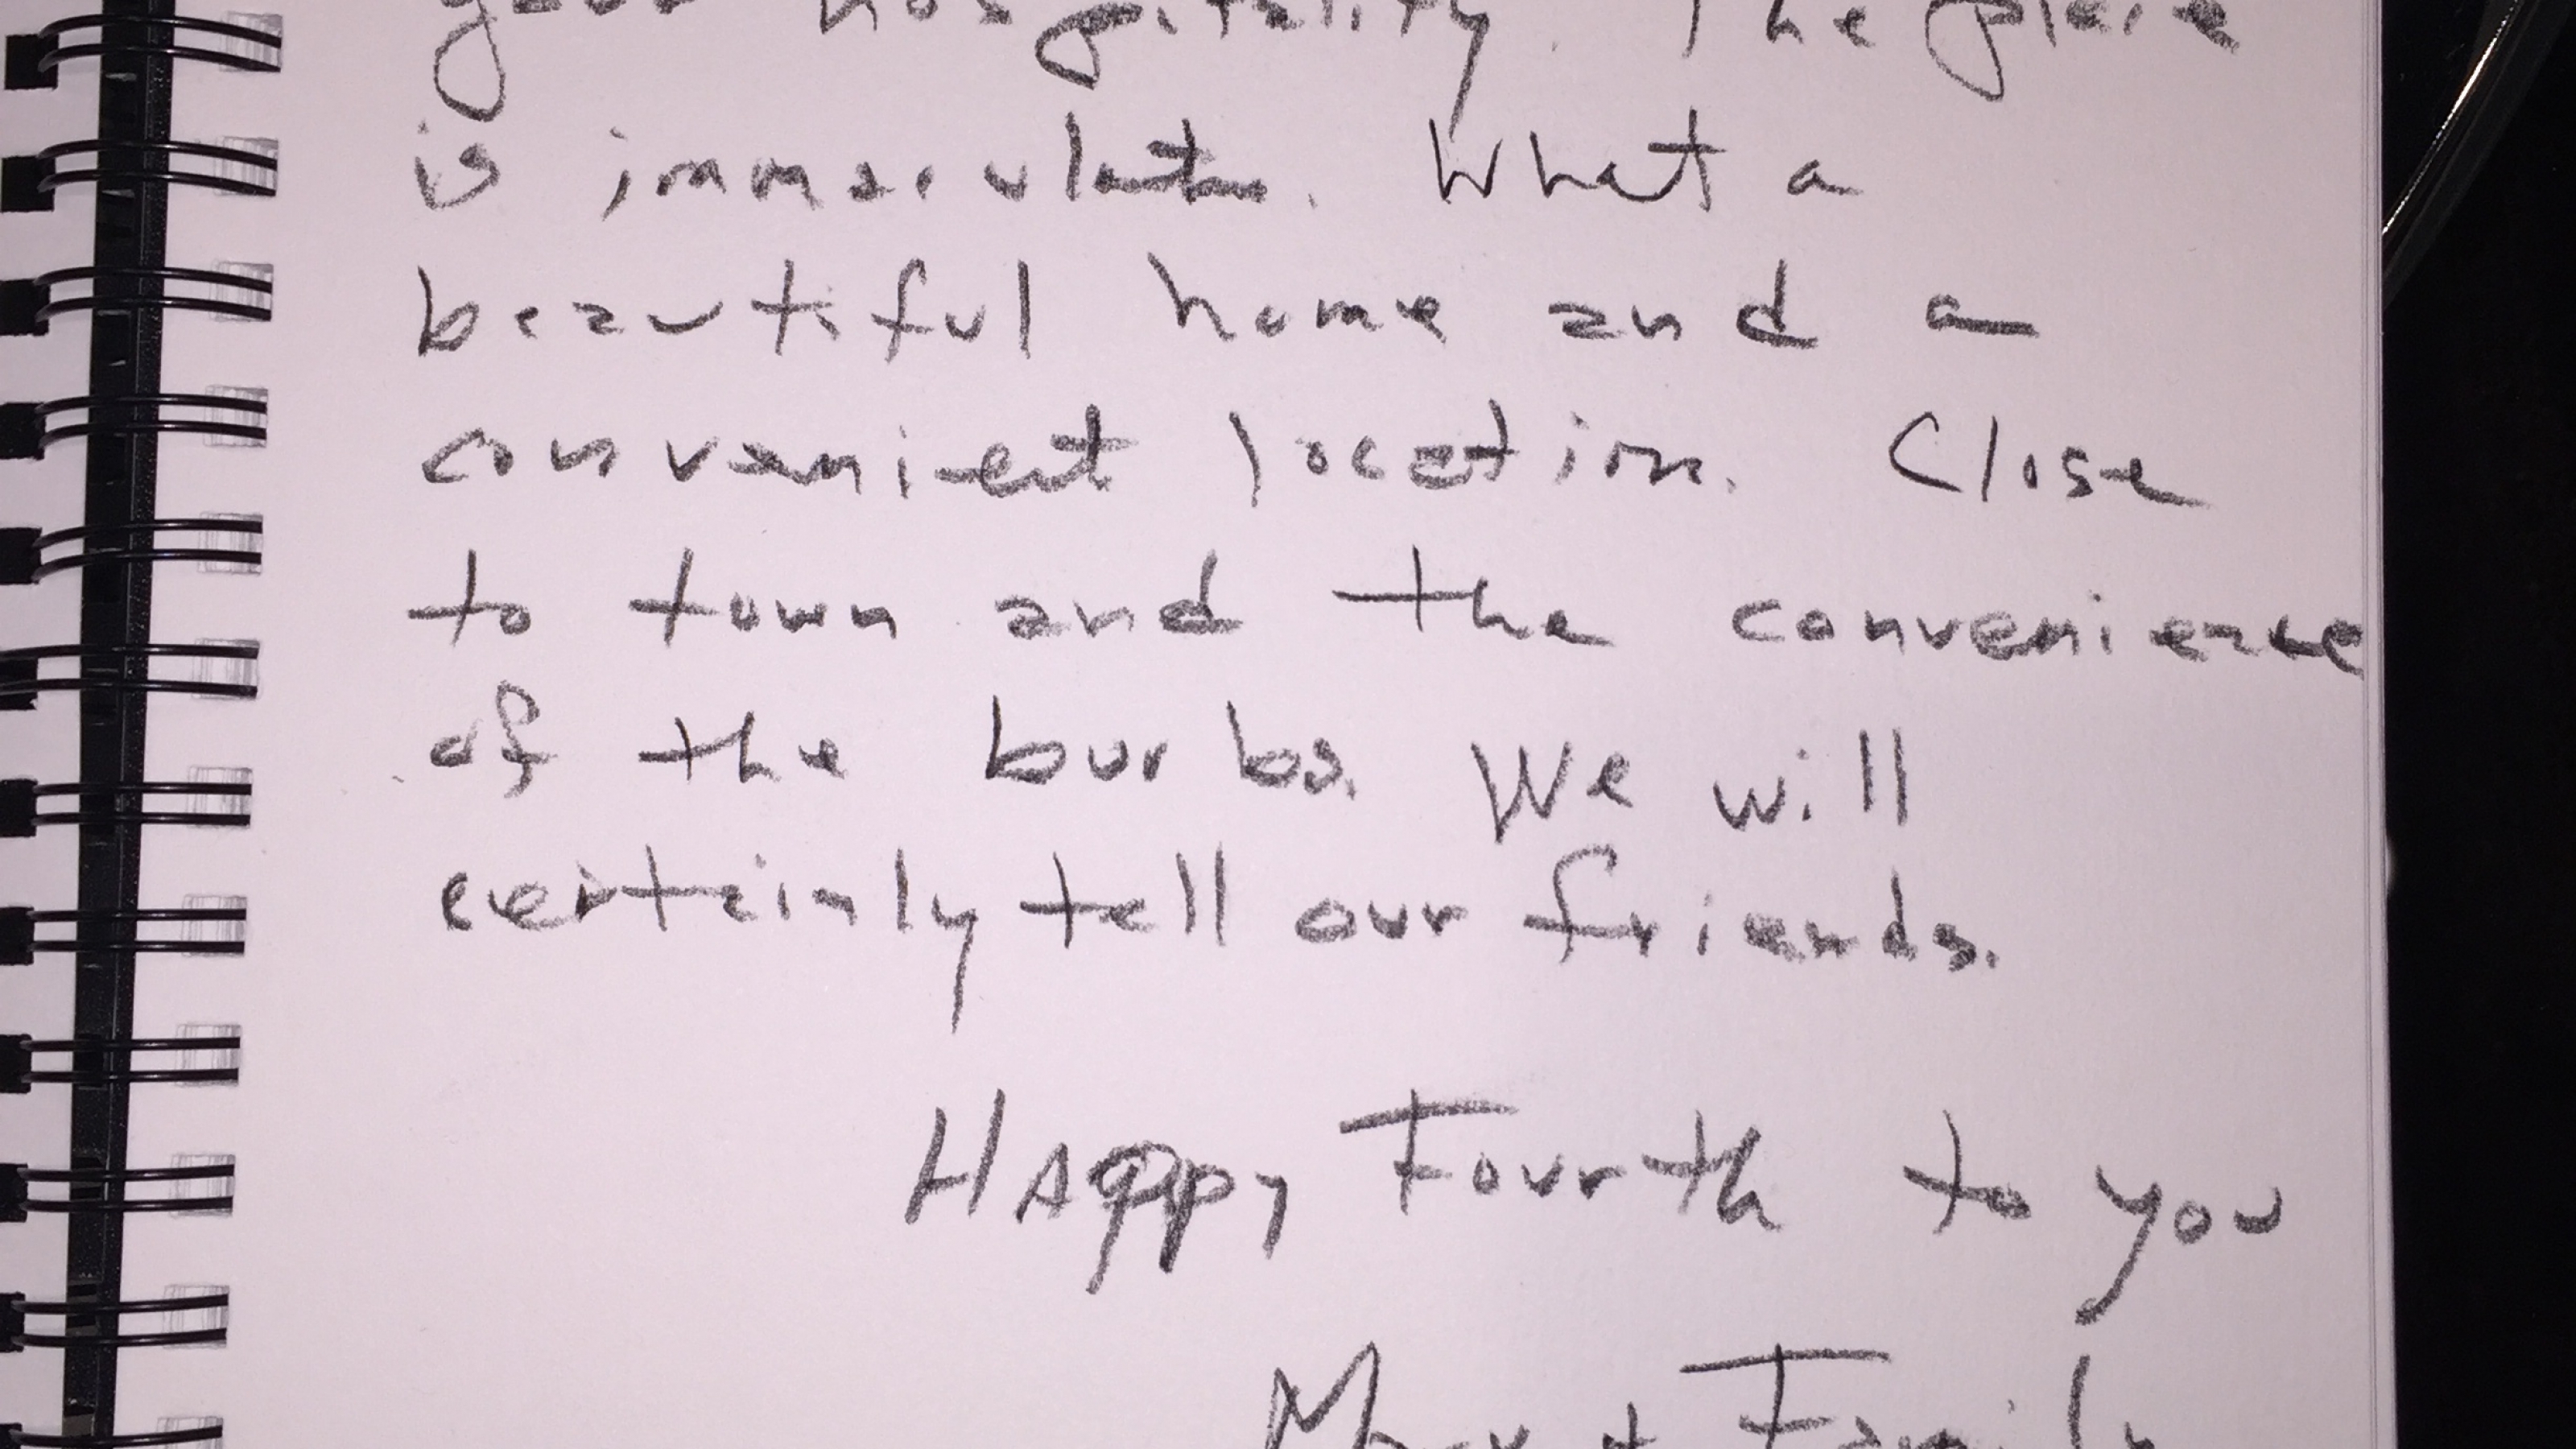 your hospitality. The place
is immaculate. What a
beautiful home and a
convenient location. Close
to town and the convenience
of the burbs. We will
certainly tell our friends.
Happy Fourth to you
Family